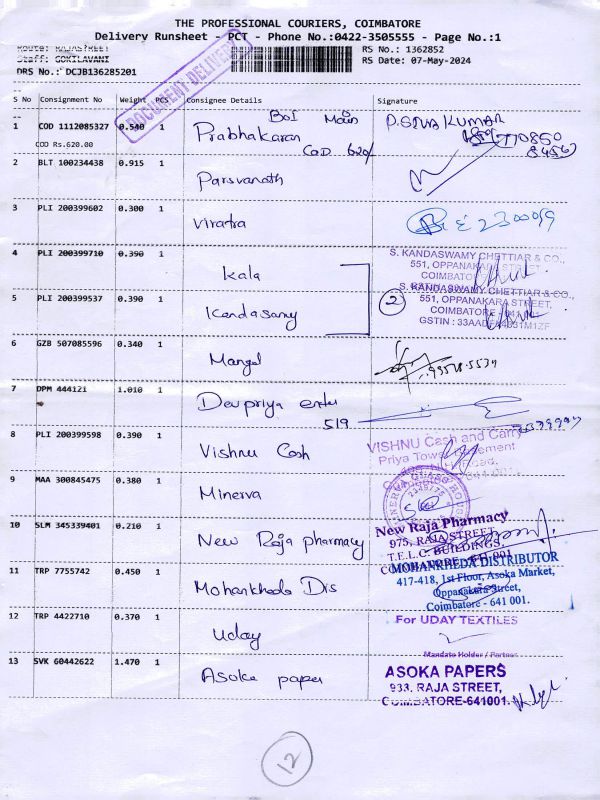 THE PROFESSIONAL COURIERS, COIMBATORE
Delivery Runsheet - PCT - Phone No.:0422-3505555 - Page No.:1
Route: RAJASTREET RS No.: 1362852
Staff: GOKILAVANI RS Date: 07-May-2024
DRS No.: DCJB136285201
DOCUMENT DELIVERED
S No Consignment No Weight PCS Consignee Details Signature
BoI Main
1 COD 1112085327 0.540 1 Prabhakaran P. SIVAKUMAR
COD Rs.620.00 COD 620/
2 BLT 100234438 0.915 1 Parsvanath
3 PLI 200399602 0.300 1 Viratra
4 PLI 200399710 0.390 1 Kala
S. KANDASWAMY CHETTIAR & CO.,
551, OPPANAKARA STREET,
COIMBATORE
5 PLI 200399537 0.390 1 Kandasamy 2
S. KANDASWAMY CHETTIAR & CO.,
551, OPPANAKARA STREET,
COIMBATORE - 641 001.
GSTIN :
6 GZB 507085596 0.340 1 Mangal
7 DPM 444121 1.010 1 Devpriya enter
519
8 PLI 200399598 0.390 1 Vishnu Cash
VISHNU Cash and Carry
Priya Towers
9 MAA 300845475 0.380 1 Minerva
10 SLM 345339401 0.210 1 New Raja pharmacy
New Raja Pharmacy
975, RAJA STREET,
T.E.L.C. BUILDINGS,
COIMBATORE-641 001
11 TRP 7755742 0.450 1 Mohankheda Dis
MOHANKHEDA DISTRIBUTOR
417-418, 1st Floor, Asoka Market,
Oppanakara Street,
Coimbatore - 641 001.
12 TRP 4422710 0.370 1 Uday
For UDAY TEXTILES
Mandate Holder / Partner
13 SVK 60442622 1.470 1 Asoka paper
ASOKA PAPERS
933, RAJA STREET,
COIMBATORE-641001.
12